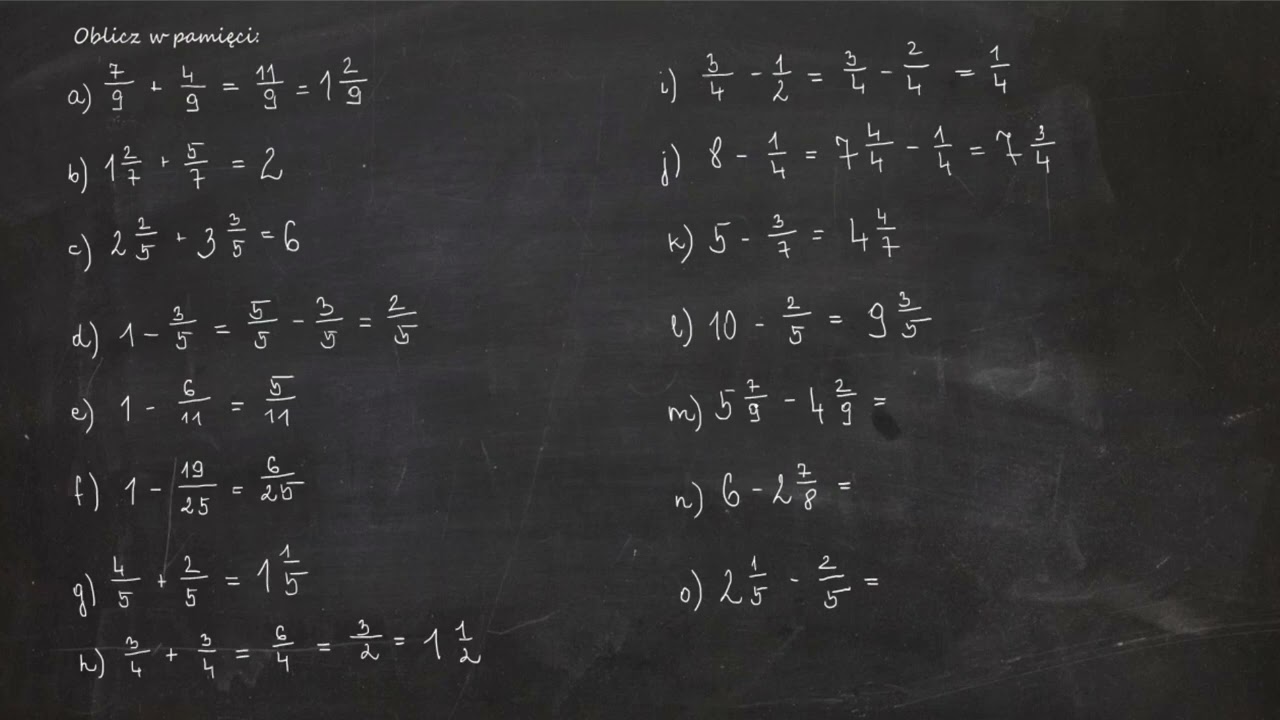 Oblicz w pamięci:
a) 7/9 + 4/9 = 11/9 = 1 2/9
b) 1 2/7 + 5/7 = 2
c) 2 2/5 + 3 3/5 = 6
d) 1 - 3/5 = 5/5 - 3/5 = 2/5
e) 1 - 6/11 = 5/11
f) 1 - 19/25 = 6/25
g) 4/5 + 2/5 = 1 1/5
h) 3/4 + 3/4 = 6/4 = 3/2 = 1 1/2
i) 3/4 - 1/2 = 3/4 - 2/4 = 1/4
j) 8 - 1/4 = 7 4/4 - 1/4 = 7 3/4
k) 5 - 3/7 = 4 4/7
l) 10 - 2/5 = 9 3/5
m) 5 7/9 - 4 2/9 =
n) 6 - 2 7/8 =
o) 2 1/5 - 2/5 =